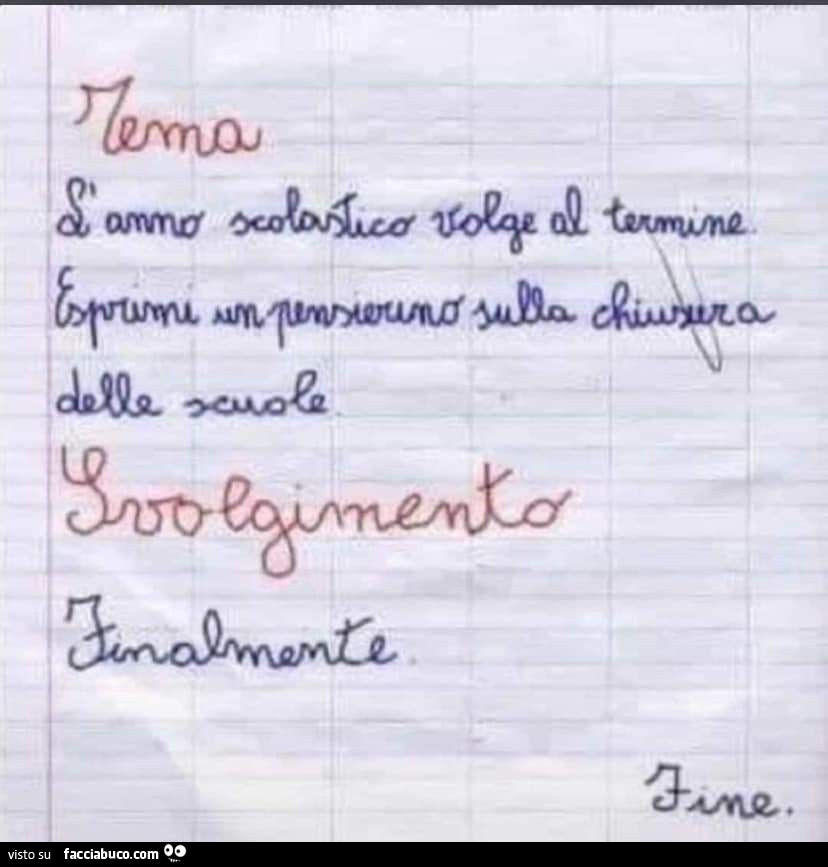 Tema
L'anno scolastico volge al termine.
Esprimi un pensierino sulla chiusura
delle scuole.
Svolgimento
Finalmente.
Fine.
visto su facciabuco.com